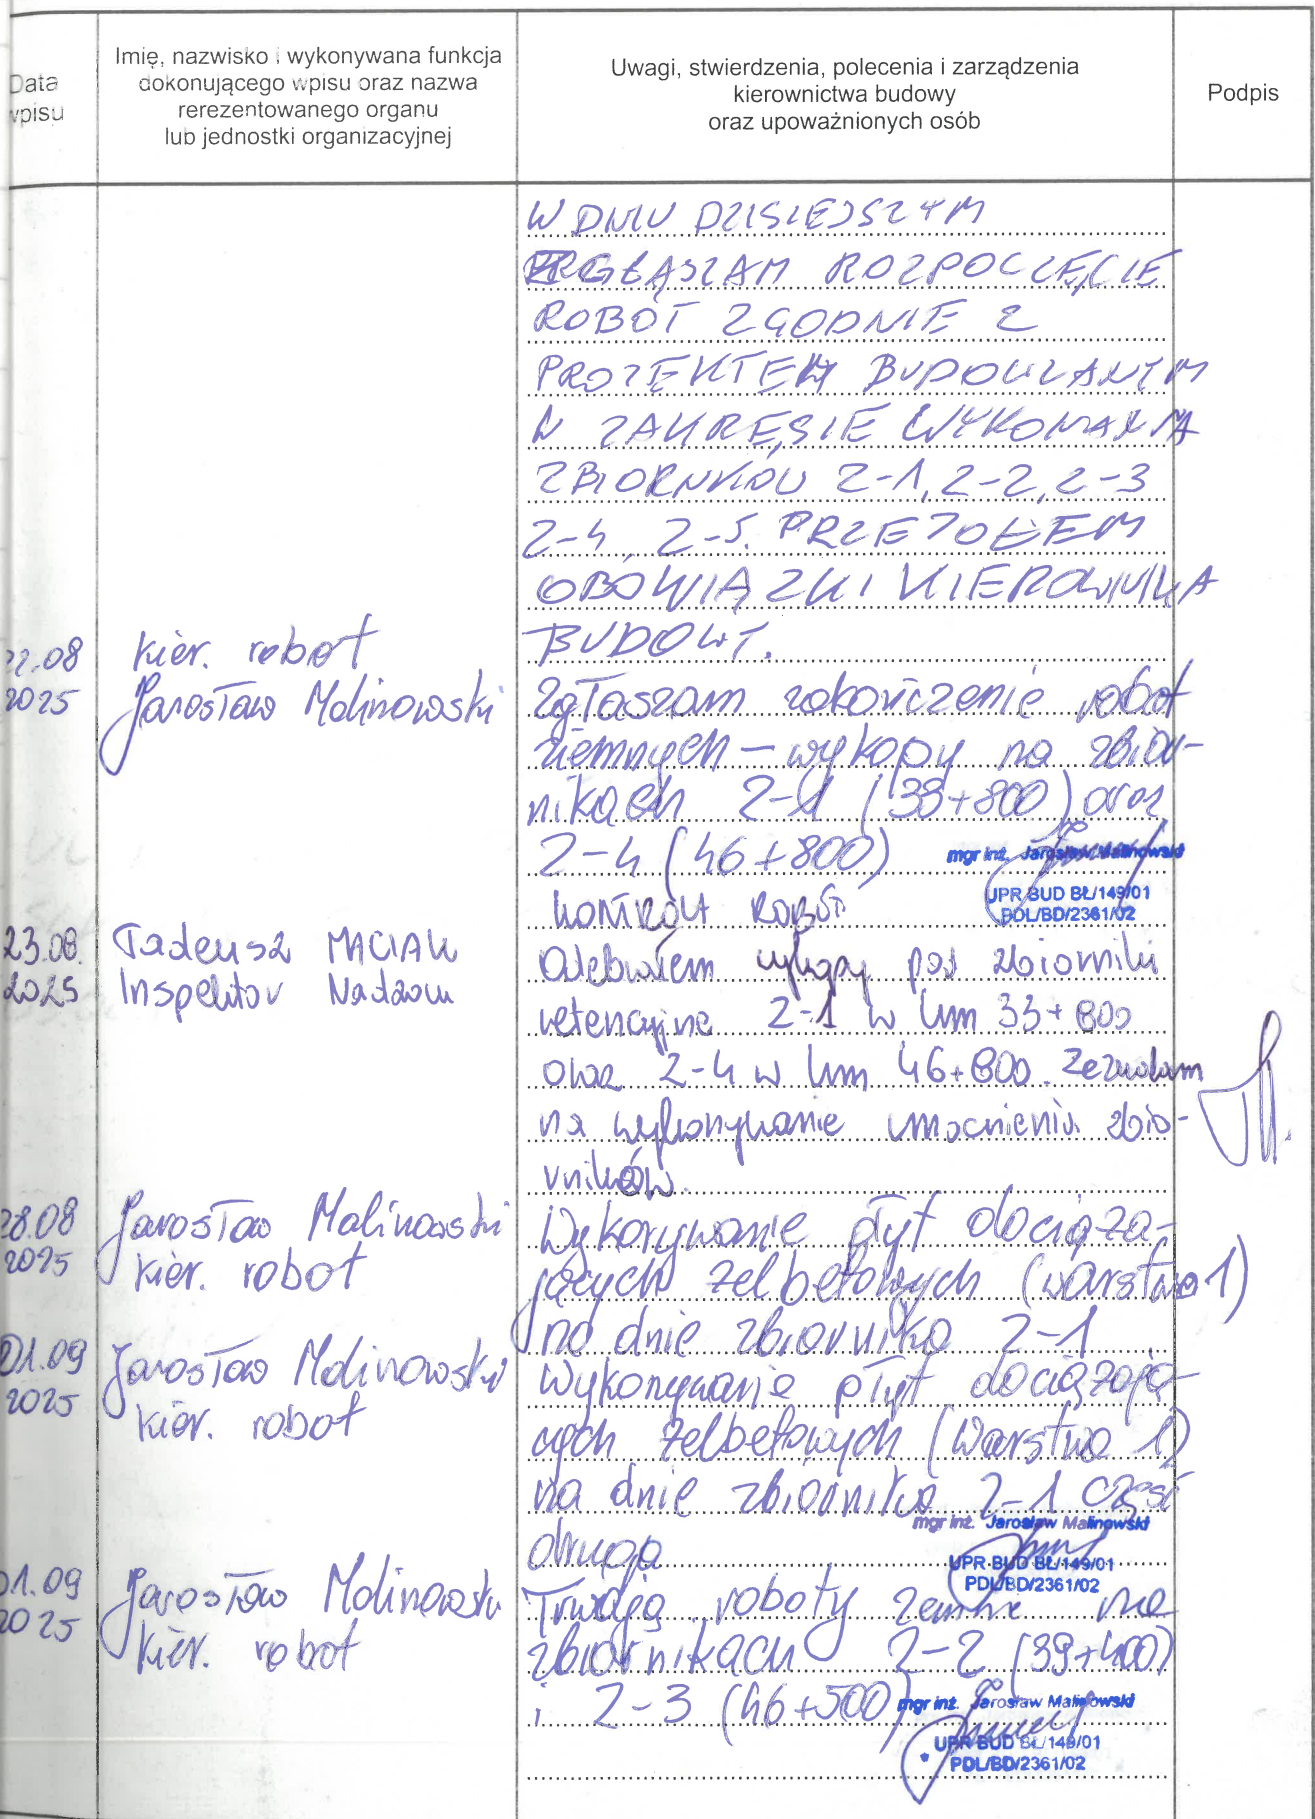 Data
wpisu
Imię, nazwisko i wykonywana funkcja
dokonującego wpisu oraz nazwa
rerezentowanego organu
lub jednostki organizacyjnej
Uwagi, stwierdzenia, polecenia i zarządzenia
kierownictwa budowy
oraz upoważnionych osób
Podpis
W DNIU DZISIEJSZYM
ZGŁASZAM ROZPOCZĘCIE
ROBÓT ZGODNIE Z
PROJEKTEM BUDOWLANYM
W ZAKRESIE WYKONANIA
ZBIORNIKÓW Z-1, Z-2, Z-3
Z-4, Z-5. PRZEJĄŁEM
OBOWIĄZKI KIEROWNIKA
BUDOWY.
22.08
2025
kier. robot
Jarosław Malinowski
Zgłaszam zakończenie robot
ziemnych – wykopy na zbior-
nikach Z-1 (33+800) oraz
Z-4 (46+800)
mgr inż. Jarosław Malinowski
UPR BUD BŁ/149/01
PDL/BD/2361/02
KONTROLA ROBÓT
23.08.
2025
Tadeusz MACIAK
Inspektor Nadzoru
Odebrałem wykopy pod zbiorniki
retencyjne Z-1 w km 33+800
oraz Z-4 w km 46+800. Zezwalam
na wykonywanie umocnienia zbio-
rników.
28.08
2025
Jarosław Malinowski
kier. robot
Wykonywanie płyt dociąża-
jących żelbetowych (warstwa 1)
na dnie zbiornika Z-1
01.09
2025
Jarosław Malinowski
kier. robot
Wykonywanie płyt dociążają-
cych żelbetowych (Warstwa 1)
na dnie zbiornika Z-1 część
druga
mgr inż. Jarosław Malinowski
UPR BUD BŁ/149/01
PDL/BD/2361/02
01.09
2025
Jarosław Malinowski
kier. robot
Trwają roboty ziemne na
zbiornikach Z-2 (39+400)
i Z-3 (46+500)
mgr inż. Jarosław Malinowski
UPR BUD BŁ/149/01
PDL/BD/2361/02